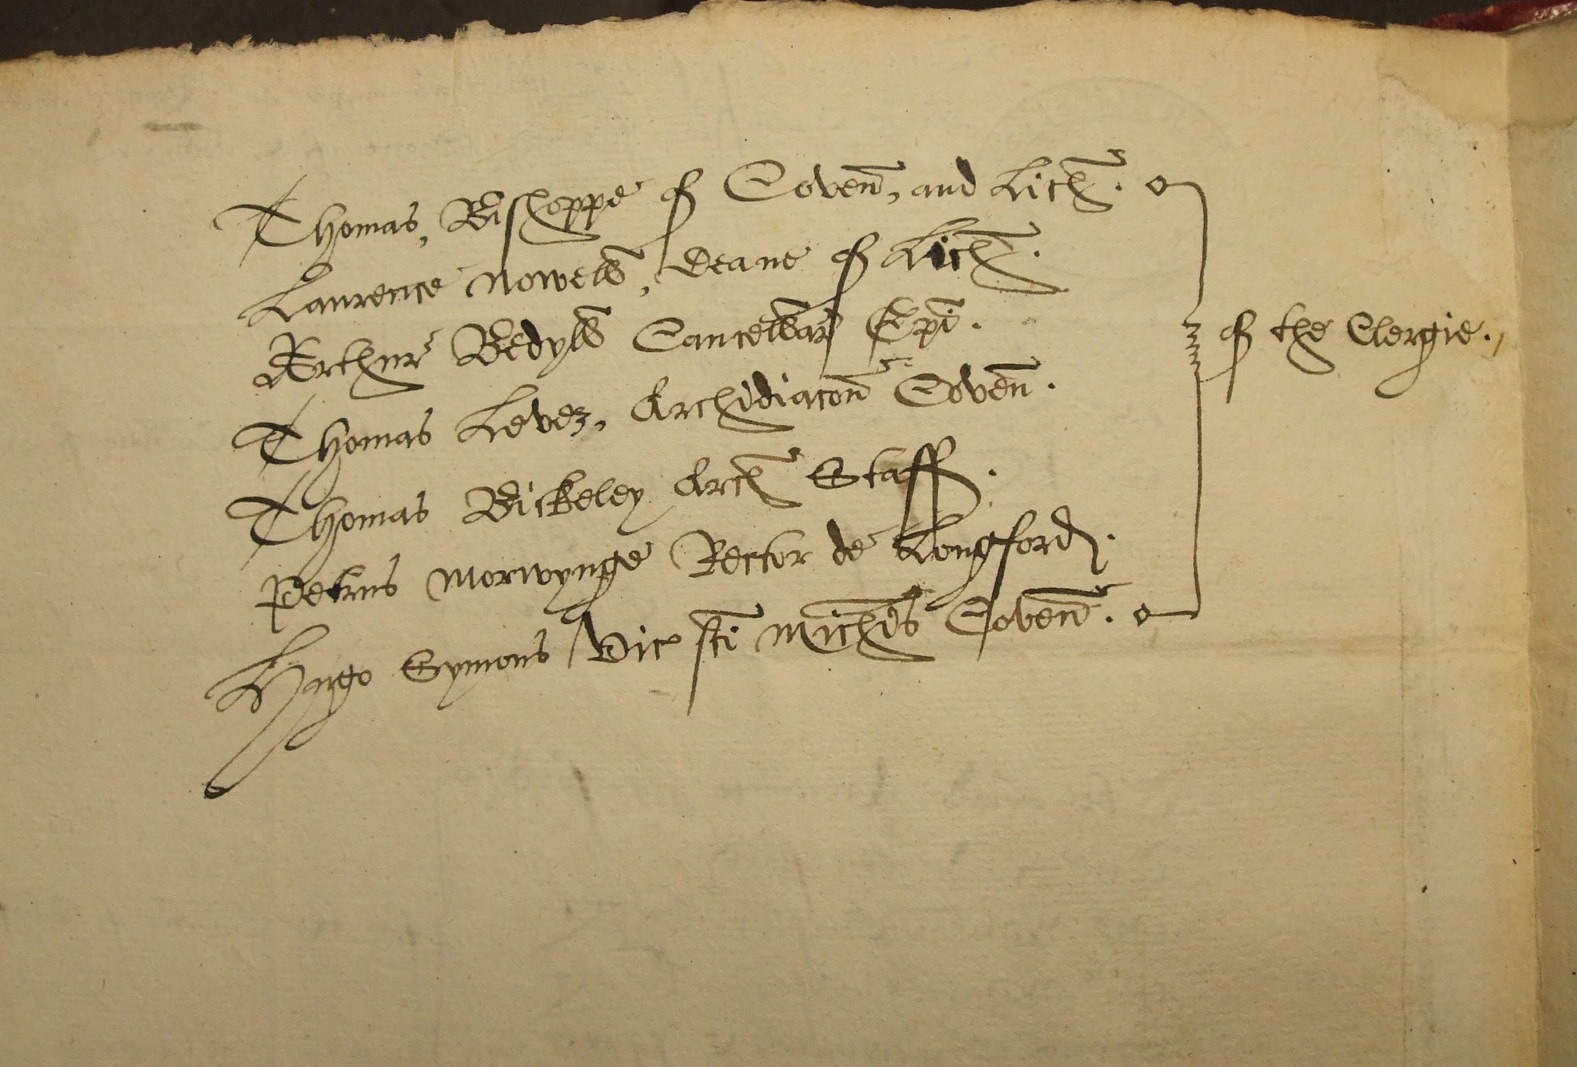 Thomas, Bishoppe of Coven, and Lich.
Laurence Nowell, Deane of Lich.
Arthur Bedyll Cancellar Epi.
Thomas Lever, Archidiacon Coven.
Thomas Bickeley Arch Staff.
Petrus Morwynge Rector de Longford.
Hugo Symons Vic sti Michis Coven.
of the Clergie.